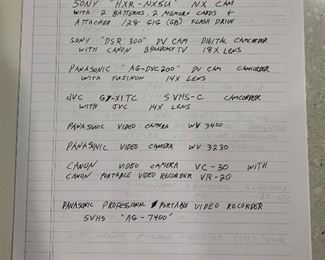 SONY "HXR-NX5U" NX CAM
WITH 2 BATTERIES, 2 MEMORY CARDS &
ATTACHED 128 GIG (GB) FLASH DRIVE
SONY "DSR 300" DV CAM DIGITAL CAMCORDER
WITH CANON BROADCAST TV 18X LENS
PANASONIC "AG-DVC200" DV CAM CAMCORDER
WITH FUJINON 14X LENS
JVC GY-X1TC SVHS-C CAMCORDER
WITH JVC 14X LENS
PANASONIC VIDEO CAMERA WV 3400
PANASONIC VIDEO CAMERA WV 3230
CANON VIDEO CAMERA VC-30 WITH
CANON PORTABLE VIDEO RECORDER VR-20
PANASONIC PROFESSIONAL PORTABLE VIDEO RECORDER
SVHS "AG-7400"